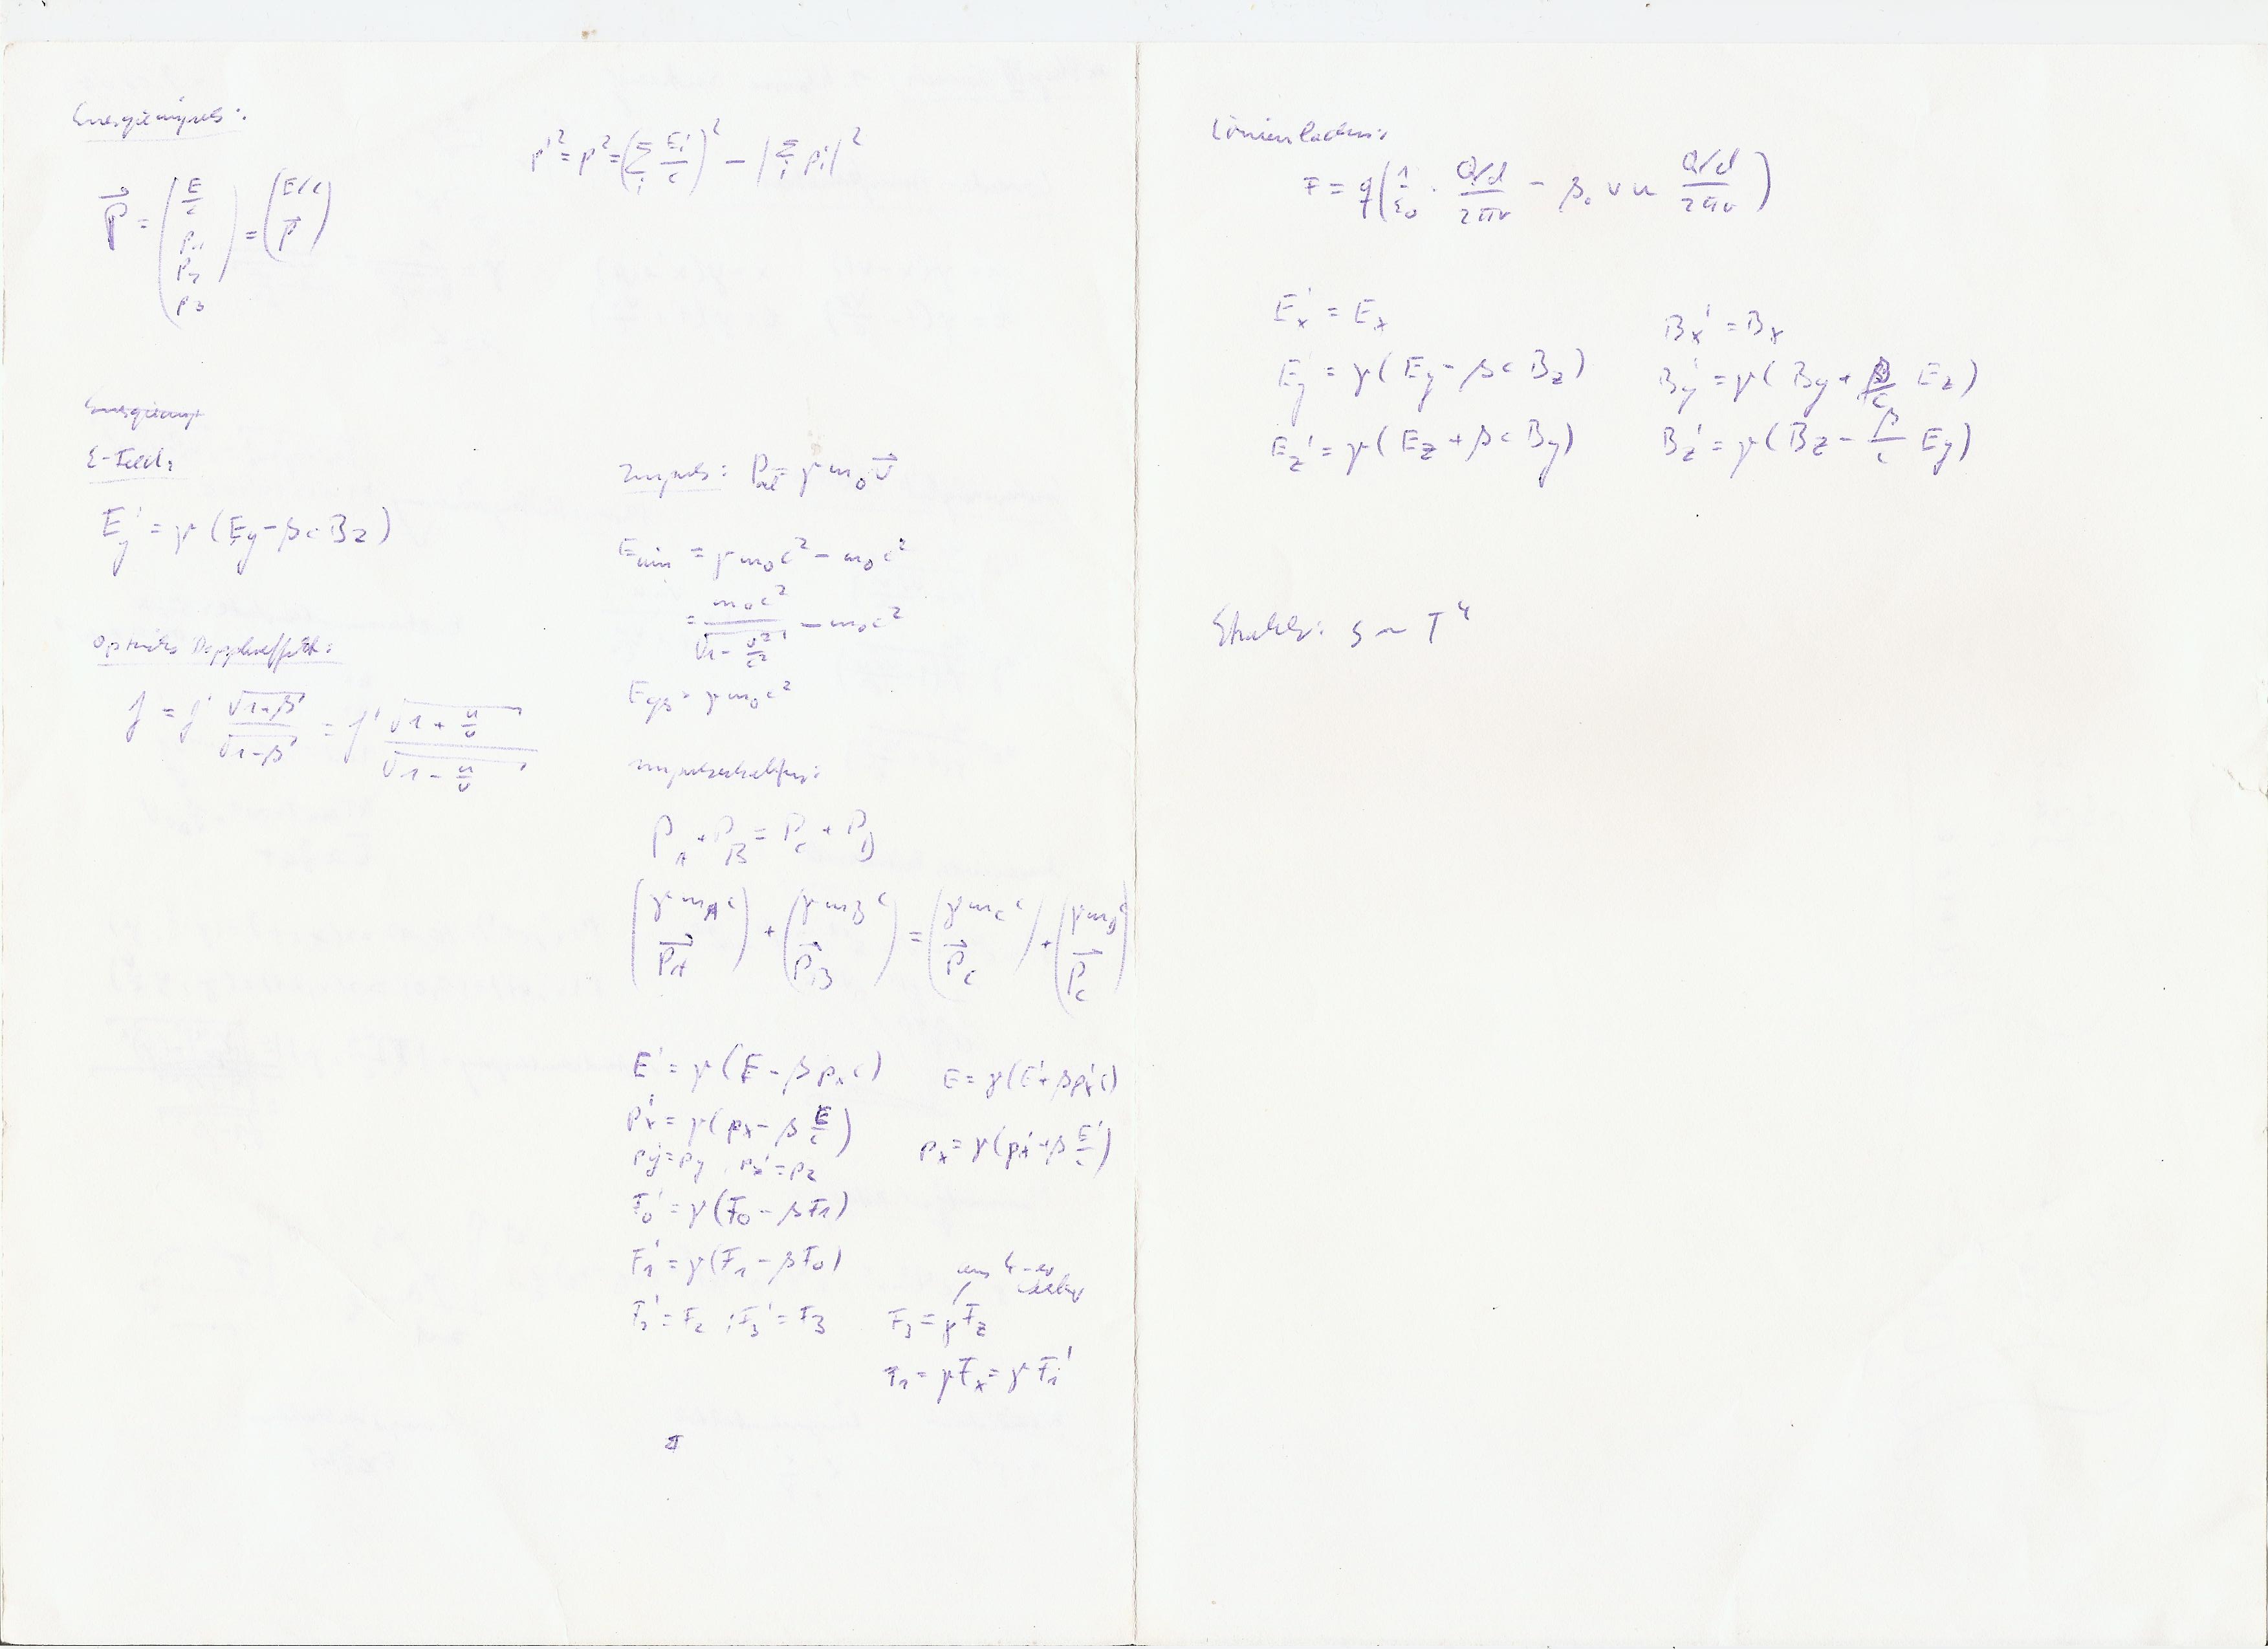 Energieimpuls:
p⃗ = (E/c p₁ p₂ p₃) = (E/c p⃗)
p'² = p² = (Σᵢ Eᵢ/c)² − |Σᵢ pᵢ|²
E-Feld:
E'y = γ (Ey − βcBz)
Optischer Dopplereffekt:
f = f' √(1+β) / √(1−β) = f' √(1 + u/v) / √(1 − u/v)
Impuls: P_rel = γ m₀ v⃗
E_kin = γ m₀c² − m₀c²
= m₀c² / √(1 − v²/c²) − m₀c²
E_ges = γ m₀c²
Impulserhaltung:
P_A + P_B = P_C + P_D
(γ m_A c P⃗_A) + (γ m_B c P⃗_B) = (γ m_C c P⃗_C) + (γ m_D c P⃗_C)
E' = γ (E − β pₓ c) E = γ (E' + β p'ₓ c)
p'ₓ = γ (pₓ − β E/c) pₓ = γ (p'ₓ + β E'/c)
p'y = py , pz' = pz
F₀' = γ (F₀ − βF₁)
F₁' = γ (F₁ − βF₀)
F₂' = F₂ ; F₃' = F₃ F₃ = γFz
F₁ = γFₓ = γF₁'
Linienladung:
F = q (1/ε₀ · Q/d / 2πr − μ₀ v u Q/d / 2πr)
E'ₓ = Eₓ Bₓ' = Bₓ
E'y = γ (Ey − βc Bz) By' = γ (By + β/c Ez)
Ez' = γ (Ez + βc By) Bz' = γ (Bz − β/c Ey)
Strahler: S ~ T⁴